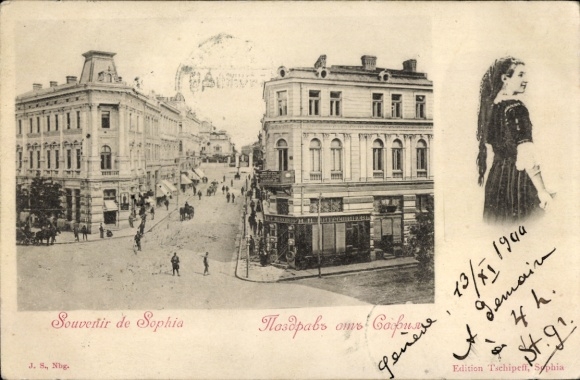 Souvenir de Sophia
Поздравъ отъ София
Genève, 13/XI 1900
A demain
à 4 h.
J. S., Nbg.
Edition Tschipeff, Sophia